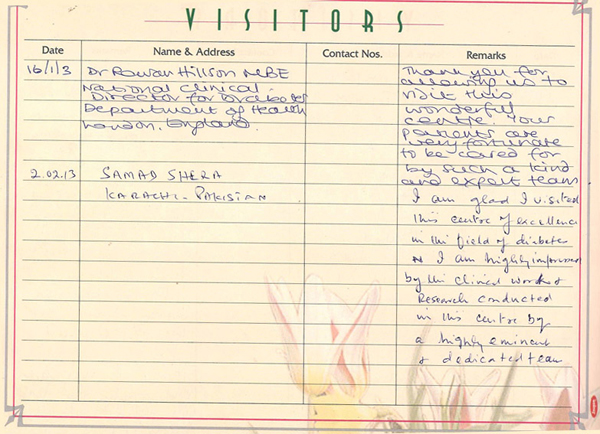 VISITORS
Date Name & Address Contact Nos. Remarks
16/1/13 Dr Rowan Hillson MBE
National Clinical
Director for Diabetes
Department of Health
London, England.
Thank you for
allowing us to
visit this
wonderful
centre. Your
patients are
very fortunate
to be cared for
by such a kind
and expert team
2.02.13 SAMAD SHERA
KARACHI - PAKISTAN
I am glad I visited
this centre of excellence
in the field of diabetes
I am highly impressed
by the clinical work &
Research conducted
in this centre by
a highly eminent
& dedicated team